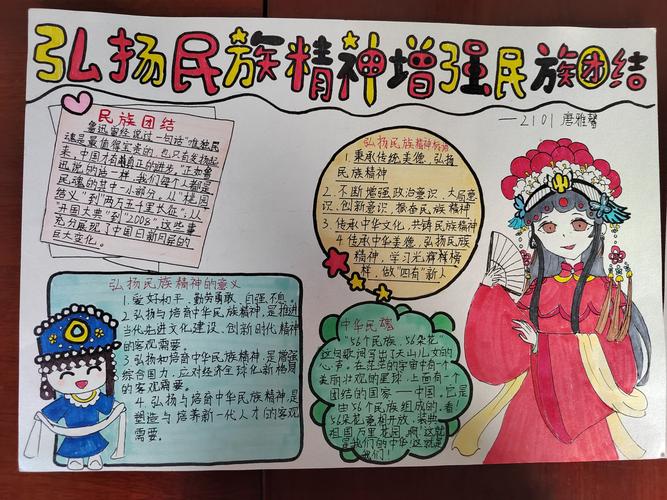 弘扬民族精神增强民族团结
——2101 唐雅馨
民族团结
鲁迅曾经说过一句话"唯独民
魂是最值得宝贵的,也只有发扬起
来,中国才有真正的进步。"正如鲁
迅说的这一样,我们每个人都是
民魂的其中一小部分,从"桃园
结义"到"两万五千里长征",从
"开国大典"到"2008",这些事
充分展现了中国日新月异的
巨大变化。
弘扬民族精神
1.秉承传统美德,弘扬
民族精神
2.不断增强政治意识、大局意
识、创新意识,振奋民族精神
3.传承中华文化,共铸民族精神
4.传承中华美德,弘扬民族
精神,学习光辉榜
样,做"四有"新人
弘扬民族精神的意义
1.爱好和平、勤劳勇敢、自强不息。
2.弘扬与培育中华民族精神,是推进
当代先进文化建设,创新时代精神
的客观需要。
3.弘扬和培育中华民族精神,是增强
综合国力,应对经济全球化新格局
的客观需要。
4.弘扬与培育中华民族精神,是
塑造与培养新一代人才的客观
需要。
中华民魂
"56个民族,56朵花"
这句歌词写出了天山儿女的
心声。在茫茫的宇宙中有一个
美丽壮观的星球,上面有一个
团结的国家——中国,它是
由56个民族组成的,看!
56朵花竞相开放,装典
祖国万里花园,啊!这就
是我们的中华这就是
我们!